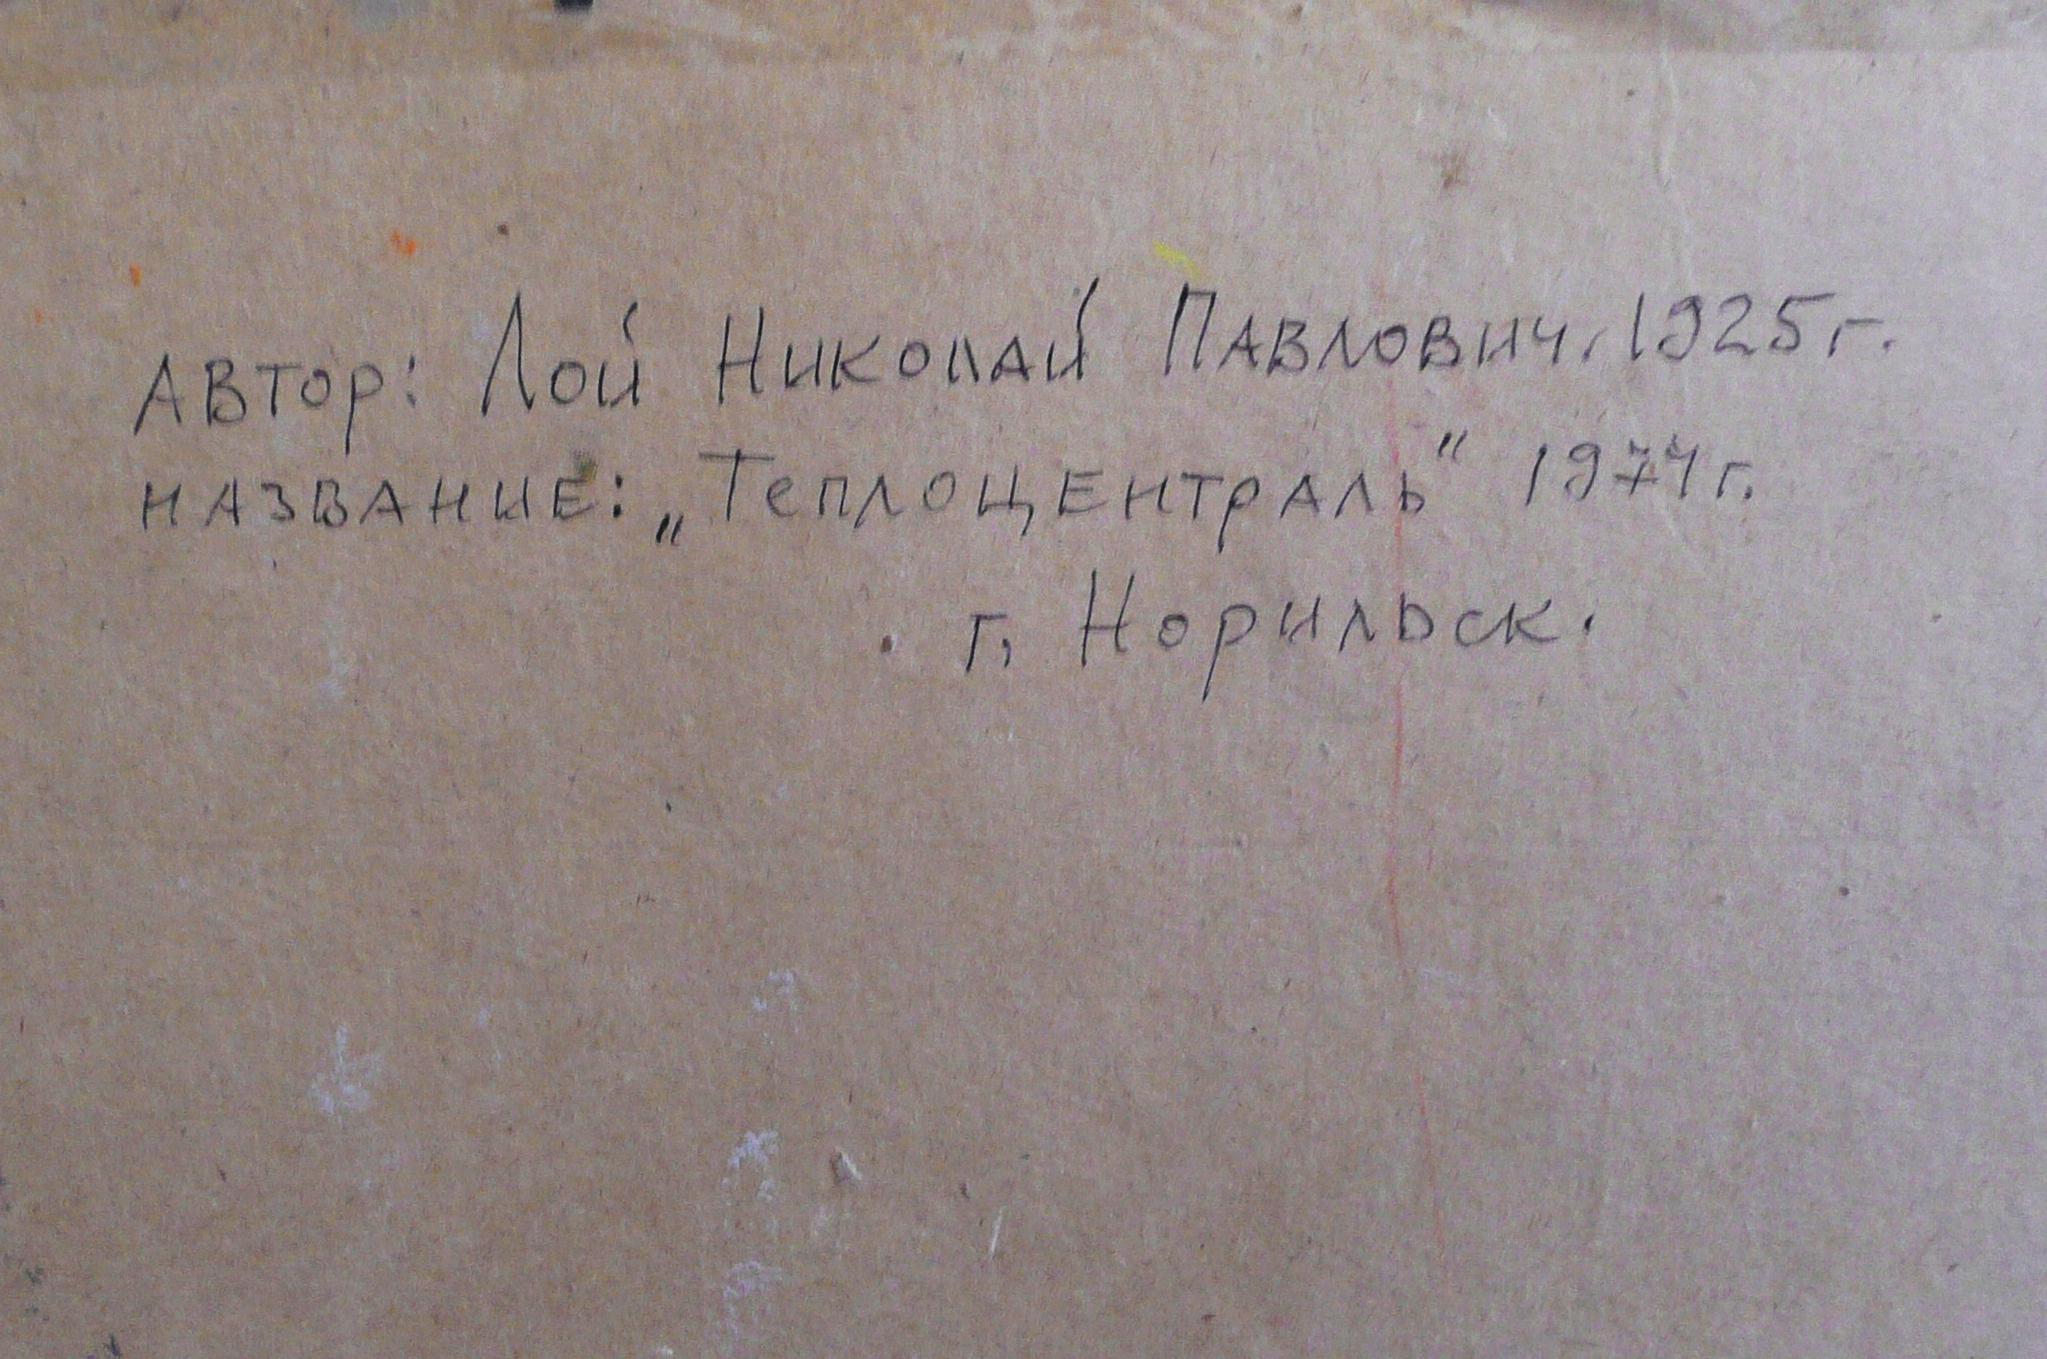 Автор: Лой Николай Павлович. 1925г.
название: „Теплоцентраль“ 1974г.
г. Норильск.